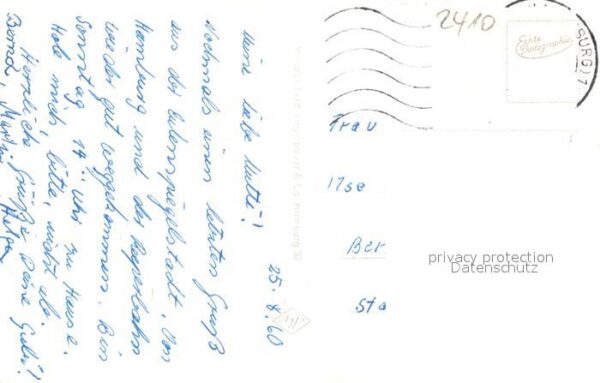 25.8.60
Meine liebe Mutti!
Nochmals einen letzten Gruß
aus der Eulenspiegelstadt. Von
Hamburg und der Reeperbahn
wieder gut weggekommen. Bin
Sonntag 14 Uhr zu Hause.
Hole mich, bitte, nicht ab.
Herzliche Grüße Deine
2410
Echte Photographie
Frau
Ilse
Ber
Sta
privacy protection
Datenschutz